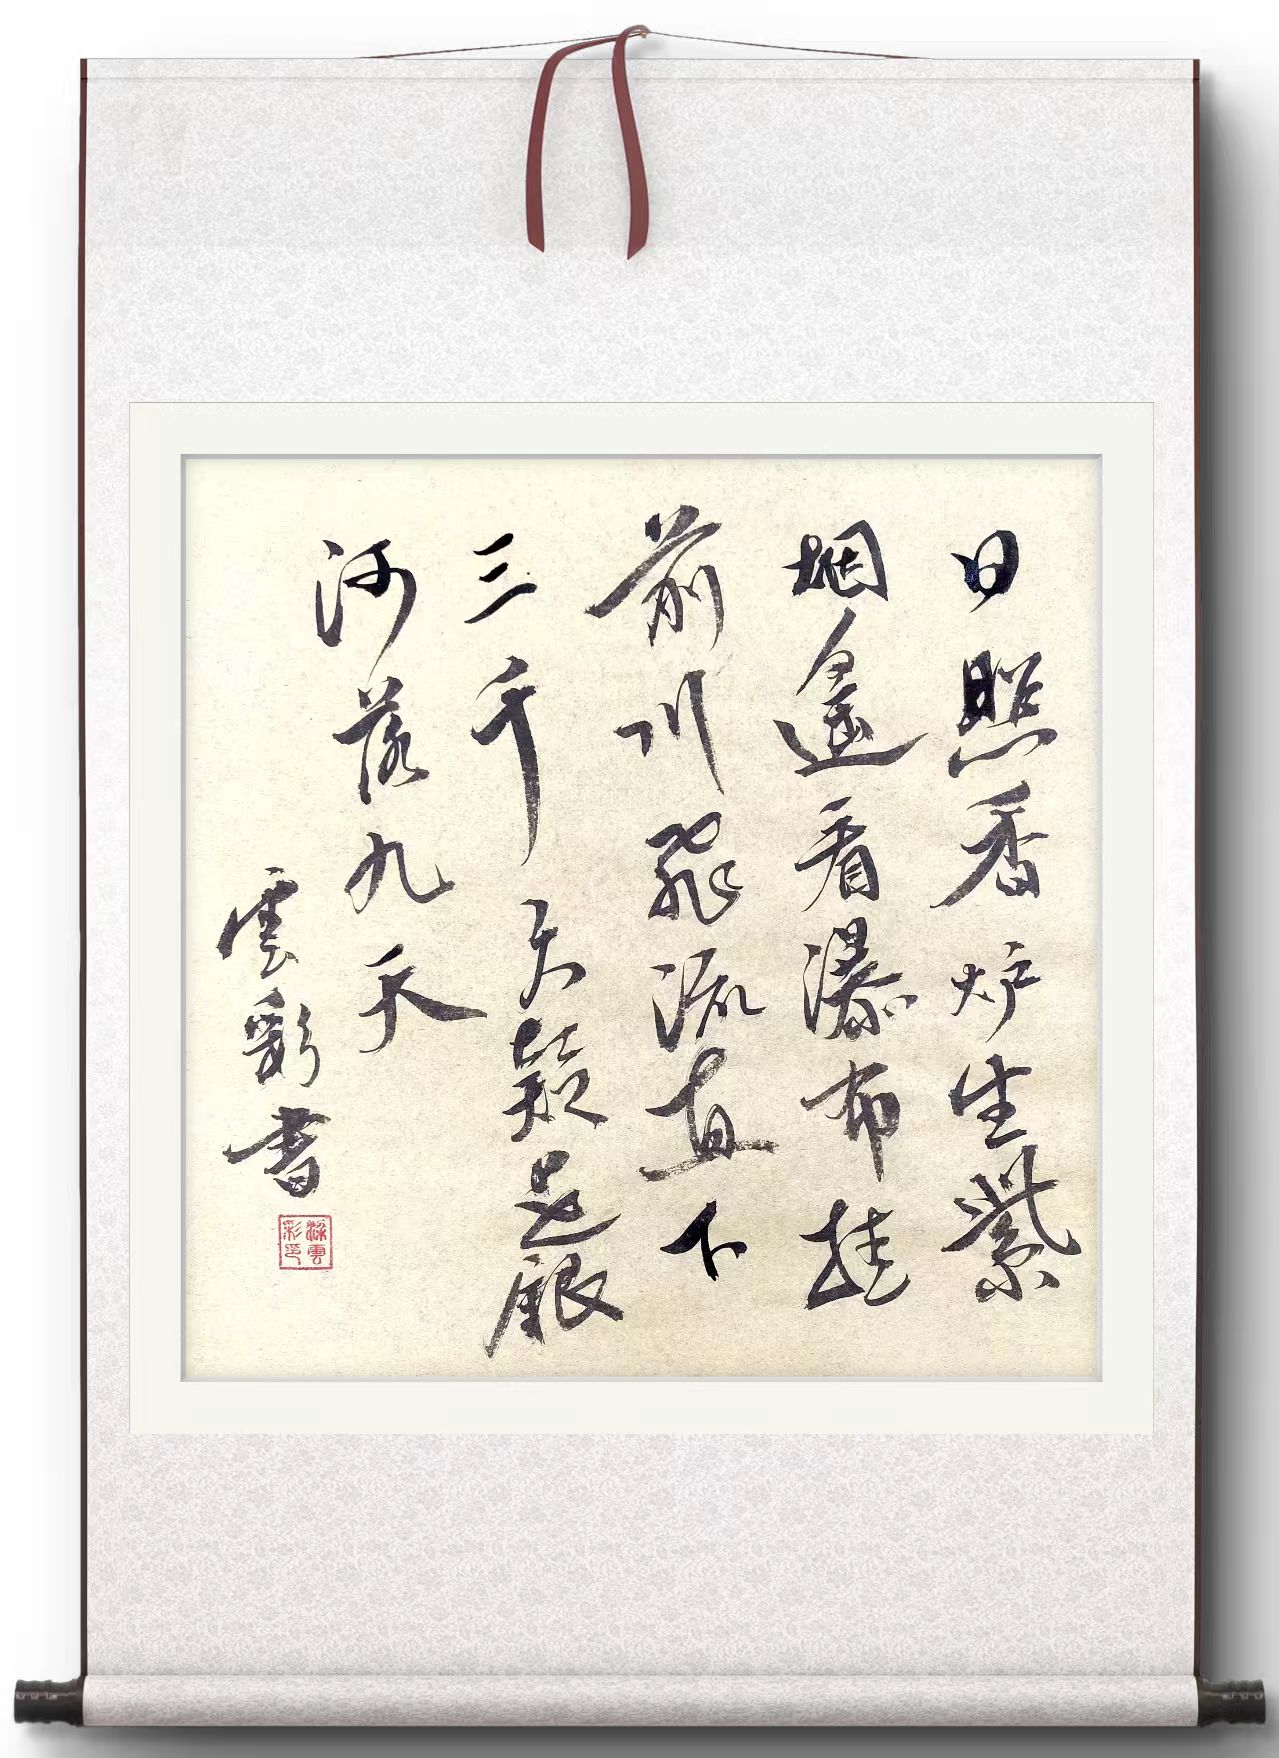 日照香炉生紫
烟遥看瀑布挂
前川飛流直下
三千尺疑是銀
河落九天
雲彩書
雲
彩印